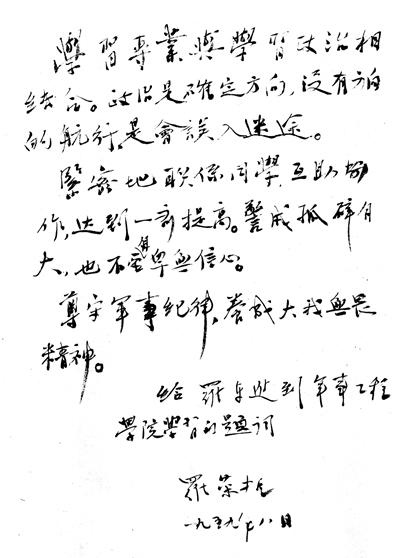 學習專業與學習政治相
结合。政治是確定方向,没有方向
的航行,是會誤入迷途。
緊密地联係同學,互助协
作,达到一齐提高。警戒孤僻自
大,也不要自卑無信心。
尊守軍事纪律,养成大我無畏
精神。
给羅东进到军事工程
學院學習的題词
羅荣桓
一九五九、七、八日